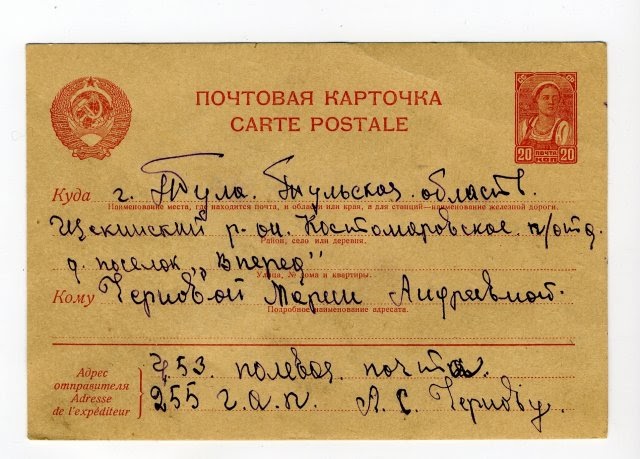 ПОЧТОВАЯ КАРТОЧКА
CARTE POSTALE
20 ПОЧТА КОП 20
Куда г. Тула. Тульская область.
Наименование места, где находится почта, и области или края, а для станций—наименование железной дороги.
Щекинский р-он. Костомаровское п/отд.
Район, село или деревня.
д. поселок „Вперед"
Улица, № дома и квартиры.
Кому Черновой Марии Андревной.
Подробное наименование адресата.
Адрес отправителя
Adresse de l'expéditeur
453. полевая почта.
255 г.а.п. А. С. Чернову.